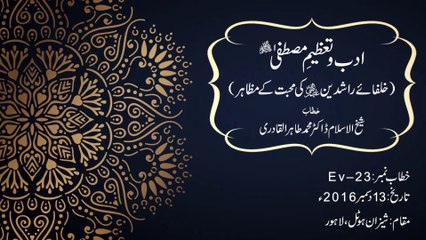 ادب و تعظیمِ مصطفیٰ ﷺ
(خلفائے راشدین رضی اللہ عنہم کی محبت کے مظاہر)
خطاب
شیخ الاسلام ڈاکٹر محمد طاہر القادری
خطاب نمبر: Ev-23
تاریخ: 13 دسمبر 2016ء
مقام: شیزان ہوٹل، لاہور